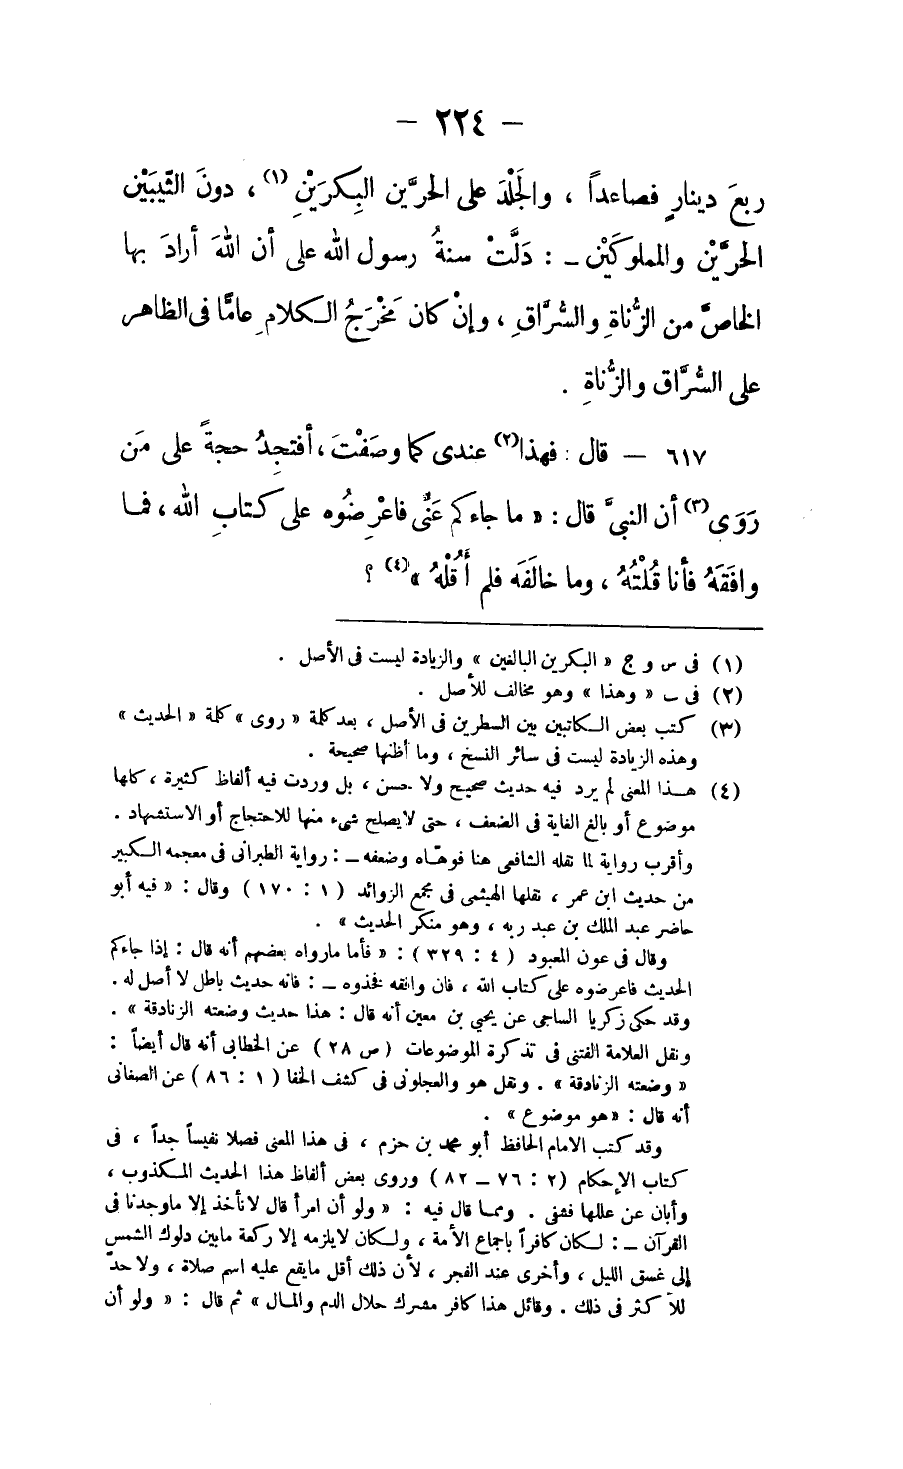 — ٢٢٤ —
ربعَ دينارٍ فصاعداً ، والجَلْدَ على الحرَّين البِكرَيْنِ (١) ، دونَ الثَّيِّبَيْن
الحرَّيْن والمملوكَيْن – : دَلَّتْ سنةُ رسول الله على أن اللهَ أرادَ بها
الخاصَّ من الزُّناةِ والسُّرَّاقِ ، وإنْ كان مَخْرَجُ الكلامِ عامًّا فى الظاهر
على السُّرَّاق والزُّناةِ .
٦١٧ — قال : فهذا (٢) عندى كما وصَفْتَ ، أفتجِدُ حجةً على مَن
رَوَى (٣) أن النبىَّ قال : « ما جاءكم عَنِّى فاعْرِضُوه على كتابِ الله ، فما
وافَقَهُ فأنا قُلْتُهُ ، وما خالَفَه فلم أَقُلْهُ » (٤) ؟
(١) فى س و ج « البكرين البالغين » والزيادة ليست فى الأصل .
(٢) فى ب « وهذا » وهو مخالف للأصل .
(٣) كتب بعض الكاتبين بين السطرين فى الأصل ، بعد كلمة « روى » كلمة « الحديث »
وهذه الزيادة ليست فى سائر النسخ ، وما أظنها صحيحة .
(٤) هذا المعنى لم يرد فيه حديث صحيح ولا حسن ، بل وردت فيه ألفاظ كثيرة ، كلها
موضوع أو بالغ الغاية فى الضعف ، حتى لايصلح شىء منها للاحتجاج أو الاستشهاد .
وأقرب رواية لما نقله الشافعى هنا فوهّاه وضعفه – : رواية الطبرانى فى معجمه الكبير
من حديث ابن عمر ، نقلها الهيثمى فى مجمع الزوائد ( ١ : ١٧٠ ) وقال : « فيه أبو
حاضر عبد الملك بن عبد ربه ، وهو منكر الحديث » .
وقال فى عون المعبود ( ٤ : ٣٢٩ ) : « فأما مارواه بعضهم أنه قال : إذا جاءكم
الحديث فاعرضوه على كتاب الله ، فان وافقه فخذوه – : فانه حديث باطل لا أصل له .
وقد حكى زكريا الساجى عن يحيى بن معين أنه قال : هذا حديث وضعته الزنادقة » .
ونقل العلامة الفتنى فى تذكرة الموضوعات ( ص ٢٨ ) عن الخطابى أنه قال أيضاً :
« وضعته الزنادقة » . ونقل هو والعجلونى فى كشف الخفا ( ١ : ٨٦ ) عن الصغانى
أنه قال : «هو موضوع » .
وقد كتب الامام الحافظ أبو محمد بن حزم ، فى هذا المعنى فصلا نفيساً جداً ، فى
كتاب الإحكام (٢ : ٧٦ – ٨٢ ) وروى بعض ألفاظ هذا الحديث المكذوب ،
وأبان عن عللها فشفى . ومما قال فيه : « ولو أن امرأ قال لانأخذ إلا ماوجدنا فى
القرآن – : لكان كافراً باجماع الأمة ، ولكان لايلزمه إلا ركعة مابين دلوك الشمس
إلى غسق الليل ، وأخرى عند الفجر ، لأن ذلك أقل مايقع عليه اسم صلاة ، ولا حدّ
للأكثر فى ذلك . وقائل هذا كافر مشرك حلال الدم والمال » ثم قال : « ولو أن